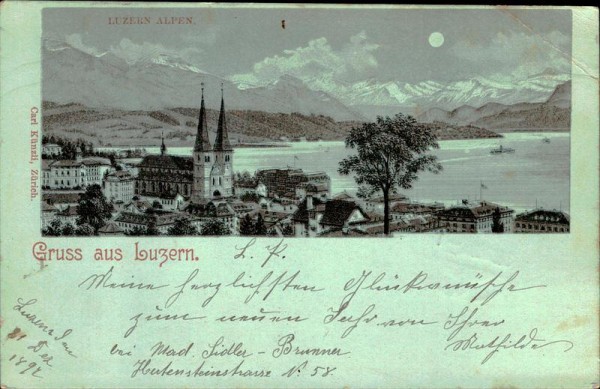 LUZERN ALPEN.
Carl Künzli, Zürich.
Gruss aus Luzern.
L. P.
Meine herzlichsten Glückwünsche
zum neuen Jahr von Ihrer
Mathilde
bei Mad. Sidler - Brunner
Hutensteinstrasse N. 58.
31 Dez